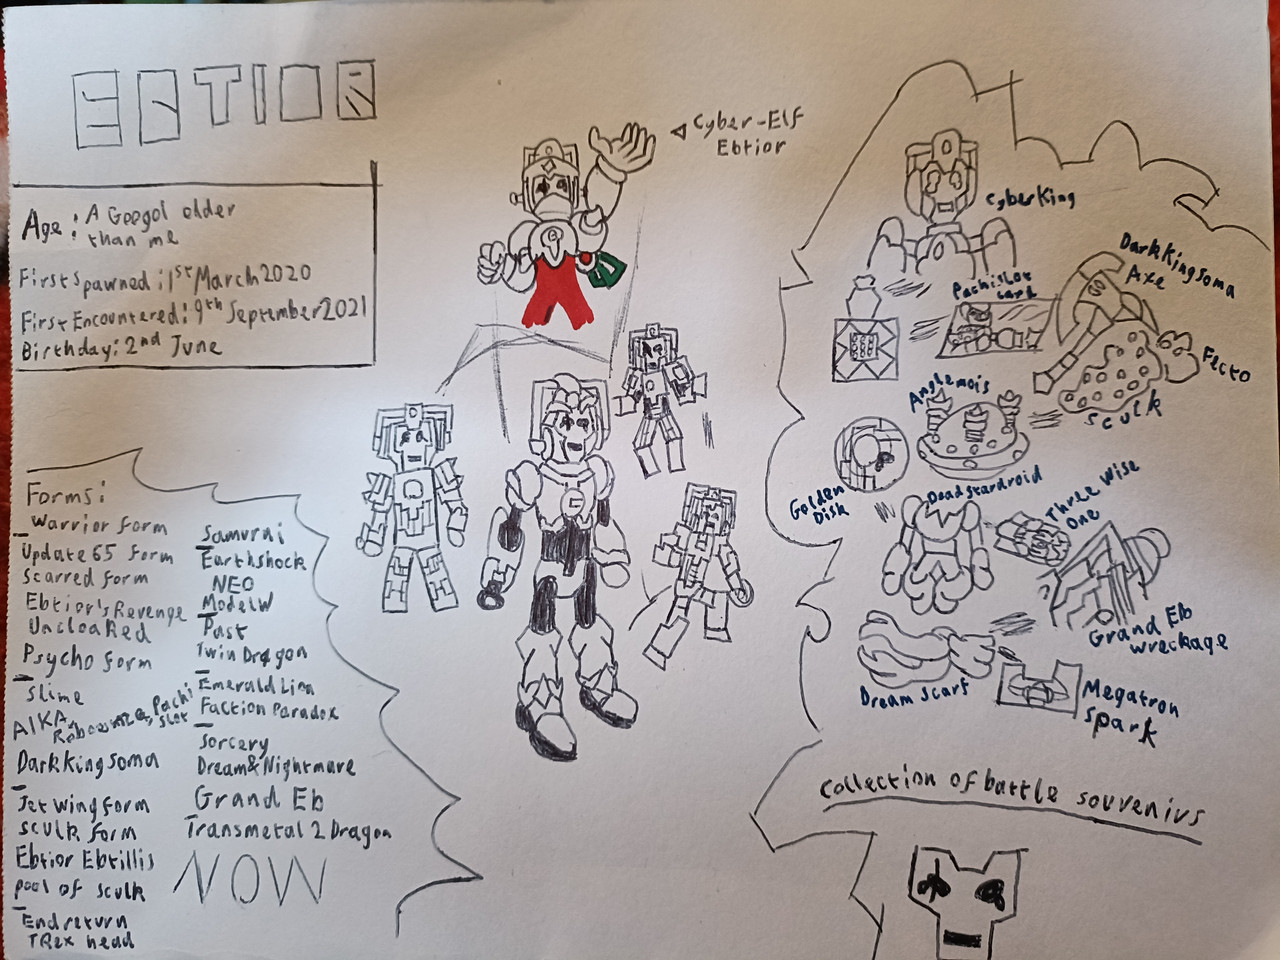 EBTIOR
Age: A Googol older
than me
First spawned: 1st March 2020
First Encountered: 9th September 2021
Birthday: 2nd June
Cyber-Elf
Ebtior
Forms:
Warrior form
Update 65 form
Scarred form
Ebtior's Revenge
Uncloaked
Psycho form
Slime
AIKA, Pachi
slot
Darkkingsoma
Jet Wing form
Sculk form
Ebtior Ebtillis
pool of sculk
End return
TRex head
Samurai
Earthshock
NEO
Model W
Past
Twin Dragon
Emerald Lion
Faction Paradox
Sorcery
Dream & Nightmare
Grand Eb
Transmetal 2 Dragon
NOW
CyberKing
Darkkingsoma
Axe
Pachislot
card
Fecto
Sculk
Anglemois
Golden
Disk
Deadstardroid
Three Wise
One
Grand Eb
wreckage
Dream scarf
Megatron
spark
Collection of battle souvenirs